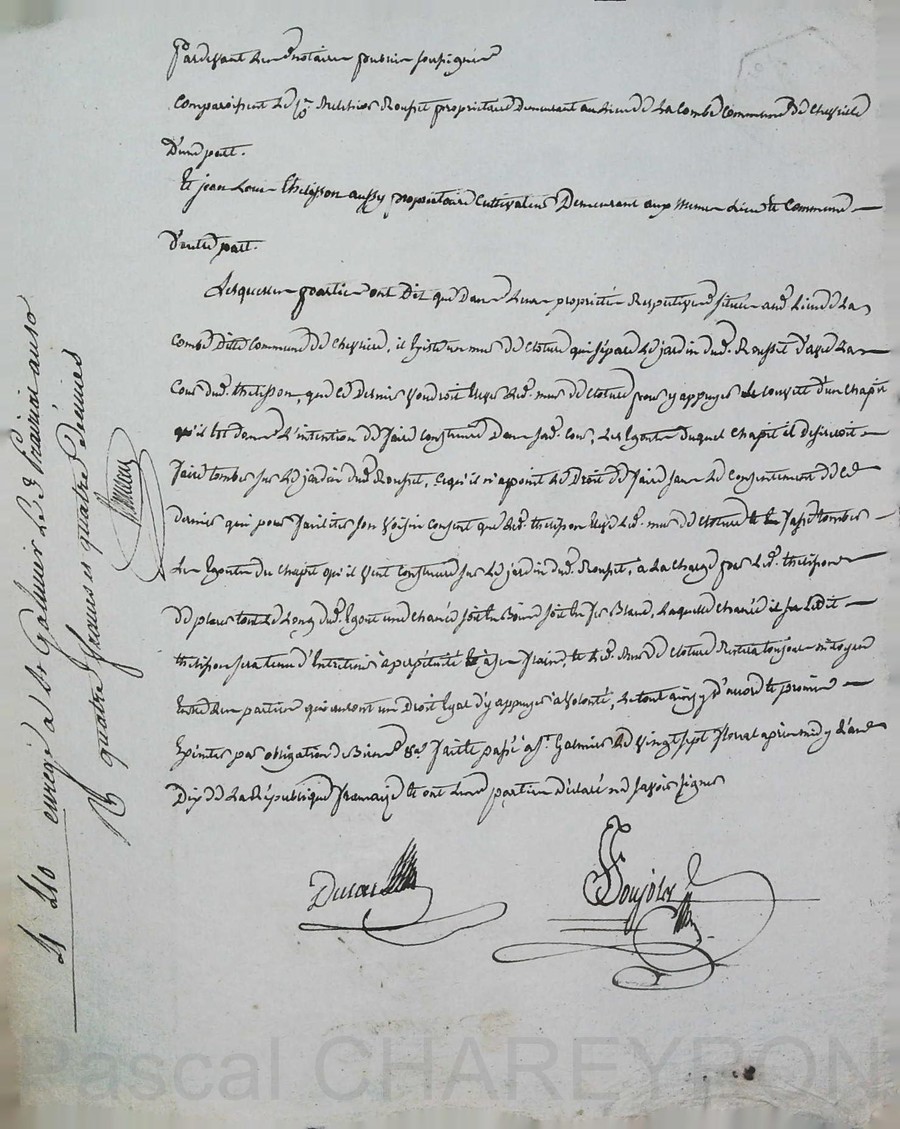 Pardevant les notaires publics soussignés
Comparoissent le sr. Melchior Rousset propriétaire demeurant au lieu de la Combe commune de Chevrière
d'une part.
Et jean Louis thelisson aussy propriétaire cultivateur demeurant aux meme lieu et commune
d'autre part.
Lesquelles parties ont dit que dans leurs propriétés respectives situées aud. lieu de la
Combe ditte commune de Chevrière, il existe un mur de cloture qui sépare le jardin dud. Rousset d'avec la
Cour dud. thelisson, que ce dernier voudroit lever led. mur de cloture pour y appuyer le couvert d'un chapit
qu'il est dans l'intention de faire construire dans sad. Cour, les Egouts duquel chapit il desireroit
faire tomber sur le jardin dud. Rousset, ce qu'il n'a point le droit de faire sans le consentement de ce
dernier qui pour faciliter son voisin consent que led. thelisson leve led. mur de cloture et fasse tomber
les Egouts du chapit qu'il veut construire sur le jardin dud. Rousset, à la charge par led. thelisson
de placer tout le long dud. Egout une chanée soit en Bois soit en fer Blanc, laquelle chanée il sera ledit
thelisson sera tenu d'Entretenir à perpétuité et à ses fraix, et led. mur de cloture restera toujours mitoyen
Entre les parties qui auront un droit Egal d'y appuyer à volonté, le tout ainsy d'accord et promis
par obligation de Biens &a. fait et passé à St. Galmier le vingt sept floreal après midy l'an
Dix de la République française et ont lesd. parties déclaré ne savoir signer
Pascal CHAREYRON
enregé à St Galmier le 3 Prairial an 10
R quatre francs et quatre décimes